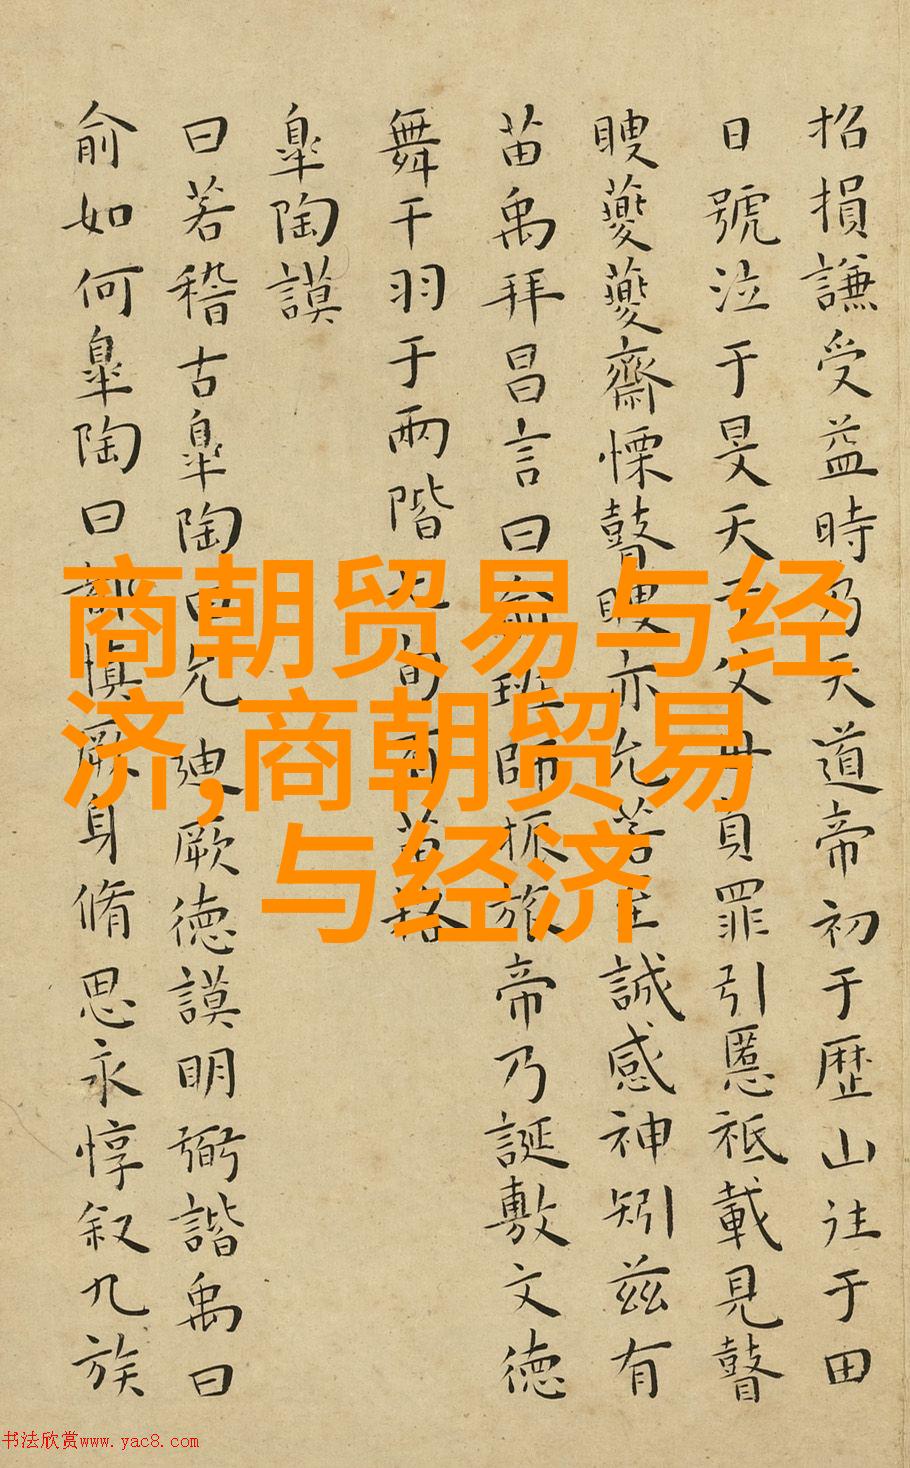 招損謙受益時乃天道帝初于歴山往于田
日號泣于旻天于父母負罪引慝祗載見瞽
瞍夔夔齋慄瞽瞍亦允若至誠感神矧茲有
苗禹拜昌言曰俞班師振旅帝乃誕敷文德
舞干羽于兩階七旬有苗格
皐陶謨
曰若稽古皐陶曰允迪厥德謨明弼諧禹曰
俞如何皐陶曰都慎厥身脩思永惇叙九族
商朝贸易与经
济,商朝贸易
与经济
书法欣赏www.yac8.com